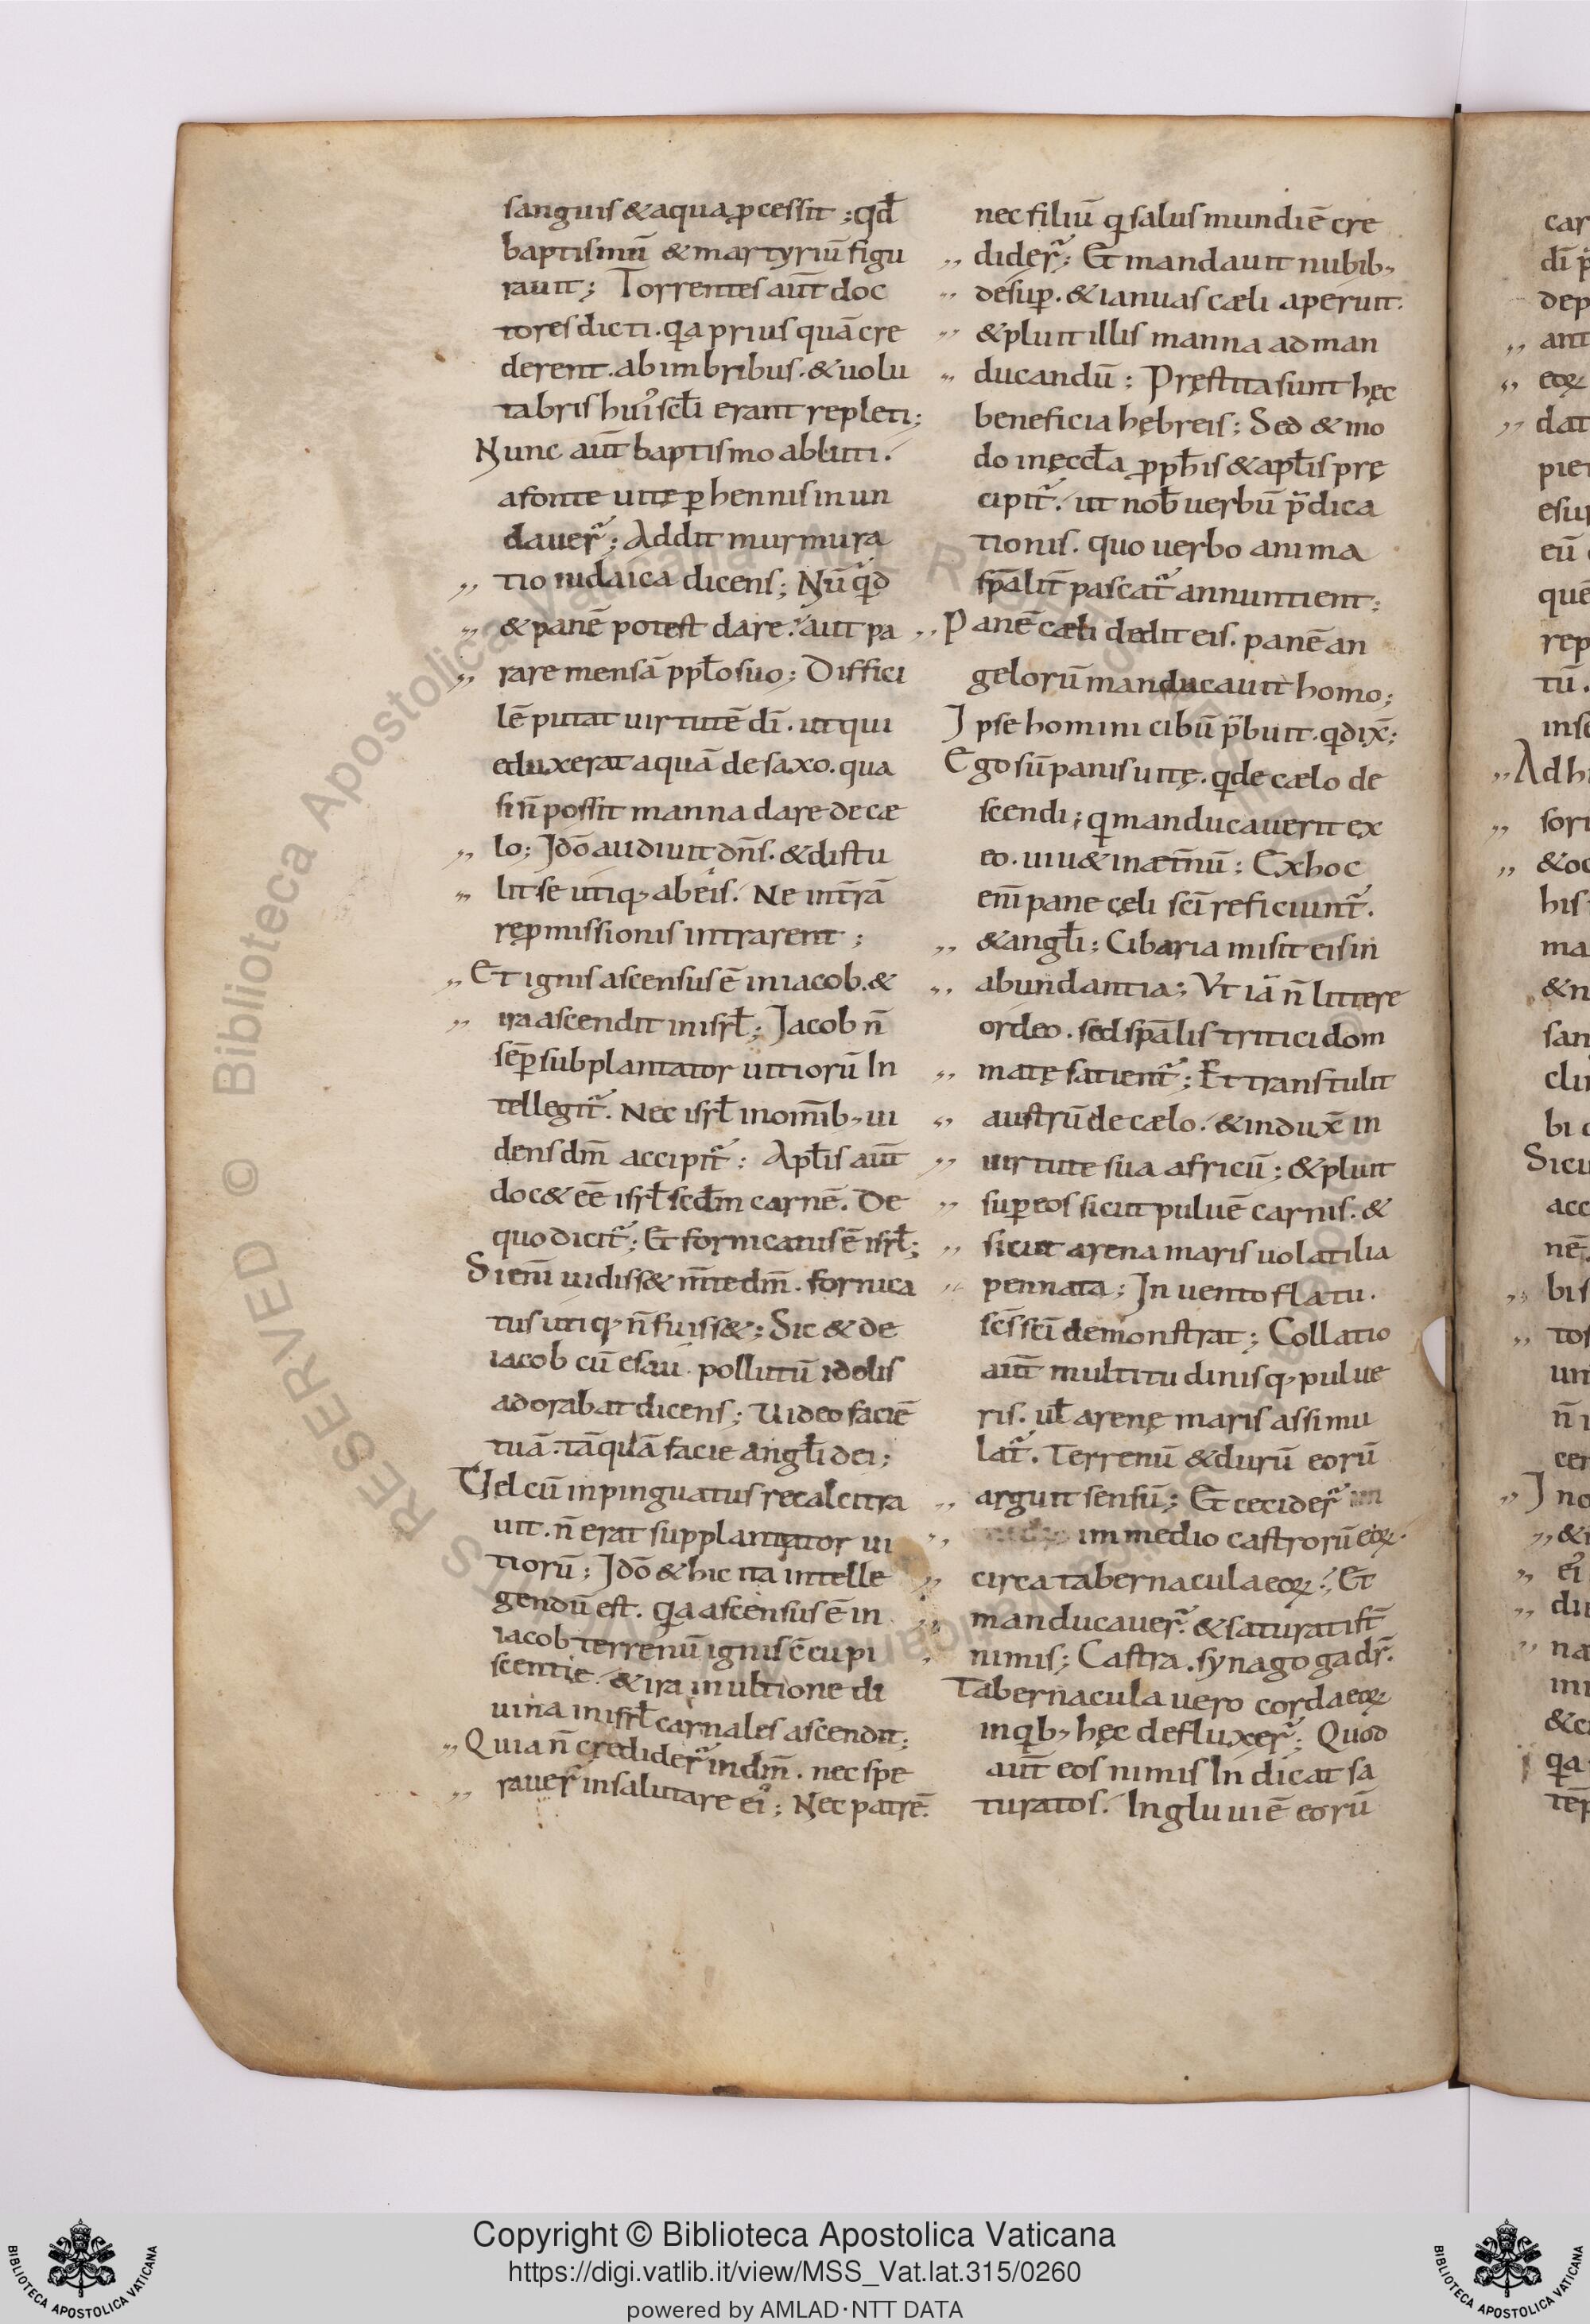 sanguis & aqua ꝓcessit ; qđ
baptismū & martyriū figu
rauit ; Torrentes aūt doc
tores dicti . qa prius quā cre
derent . ab imbribus . & uolu
tabris hui᾽ scłi erant repleti ;
Nunc aūt baptismo abluti .
a fonte uitę p hennis inun
dauer̃ ; Addit murmura
,, tio iudaica dicens ; Nū qd
,, & panē potest dare . aut pa
,, rare mensā ppło suo ; Diffici
lē putat uirtutē dī . ut qui
eduxerat aquā de saxo . qua
si n̄ possit manna dare de cæ
,, lo ; Idō audiuit dn̄s . & distu
,, lit se utiq, ab eis . Ne in t̄rā
repmissionis intrarent ;
,, Et ignis ascensus ē in iacob . &
,, ira ascendit in isrł ; Jacob n̄
sēp subplantator uitiorū In
tellegit̃ . Nec isrł in om̄ib, ui
dens dm̄ accipit̃ ; Apłis aūt
doc& eē isrł scđm carnē . De
quo dicit̃ ; Et fornicatus ē isrł ;
Si enī uidiss& m̄te dm̄ . fornica
tus utiq, n̄ fuiss& ; Sic & de
iacob cū esau . pollutū idolis
adorabat dicens ; Uideo faciē
tuā . tāquā facie angłi dei ;
Uel cū inpinguatus recalcitra
uit . n̄ erat supplantator ui
tiorū ; Idō & hic ita intelle
gendū est . qa ascensus ē in
iacob terrenū ignis c̄cupi
scentię . & ira in ultione di
uina in isrł carnales ascendit ;
,, Quia n̄ credider̃ in dm̄ . nec spe
,, rauer̃ in salutare ei᾽ ; Nec patrē .
nec filiū q salus mundi ē cre
,, dider̃ ; Et mandauit nubib,
,, desup . & ianuas cæli aperuit .
,, & pluit illis manna ad man
,, ducandū ; Pręstita sunt hęc
beneficia hębreis ; Sed & mo
do in ęccła ꝓpħis & apłis prę
cipit̃ . ut nob̄ uerbū p̃dica
tionis . quo uerbo anima
sp̄alit̄ pascat̃ annuntient ;
,, Panē cæli dedit eis . panē an
gelorū manducauit homo ;
Ipse homini cibū p̃buit . q dix̄ ;
Ego sū panis uitę . q de cælo de
scendi ; q manducauerit ex
eo . uiu& in æt̄nū ; Ex hoc
enī pane cęli scī reficiunt̃ .
,, & angłi ; Cibaria misit eis in
,, abundantia ; Ut iā n̄ littere
ordeo . sed sp̄alis tritici dom
,, matę satient̃ ; Et transtulit
,, austrū de cælo . & indux̄ in
,, uirtute sua africū ; & pluit
,, sup eos sicut puluē carnis . &
,, sicut arena maris uolatilia
,, pennata ; In uento flatu .
sc̄s scī demonstrat ; Collatio
aūt multitudinis q, pulue
ris . uł arenę maris assimu
lat̃ . Terrenū & durū eorū
,, arguit sensū ; Et cecider̃ in
,, im medio castrorū eoꝝ .
,, circa tabernacula eoꝝ . Et
,, manducauer̃ . & saturati st̄
,, nimis ; Castra . synagoga dr̄ .
Tabernacula uero corda eoꝝ
in qb, hęc defluxer̃ ; Quod
aūt eos nimis In dicat sa
turatos . Ingluuiē eorū
Copyright © Biblioteca Apostolica Vaticana
https://digi.vatlib.it/view/MSS_Vat.lat.315/0260
powered by AMLAD·NTT DATA